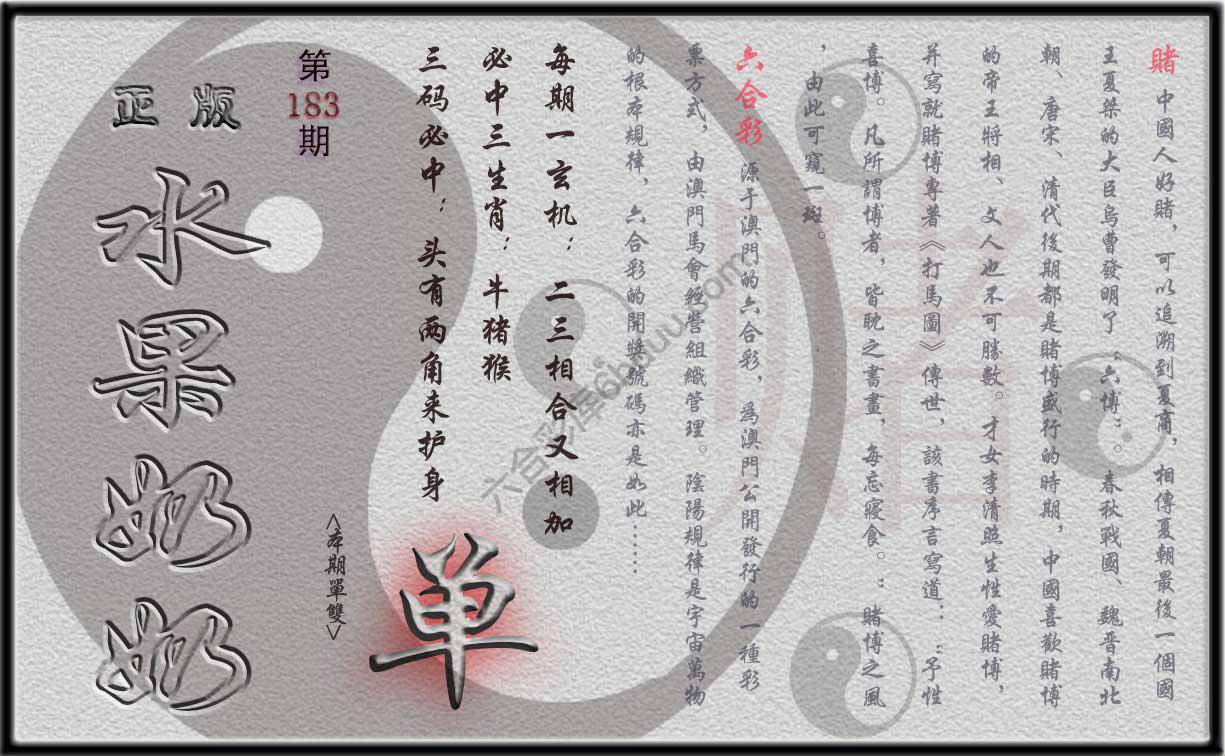 賭 中國人好賭，可以追溯到夏商，相傳夏朝最後一個國
王夏桀的大臣烏曹發明了“六博”。春秋戰國、魏晋南北
朝、唐宋、清代後期都是賭博盛行的時期，中國喜歡賭博
的帝王將相、文人也不可勝數。才女李清照生性愛賭博，
并寫就賭博專著《打馬圖》傳世，該書序言寫道：“予性
喜博。凡所謂博者，皆眈之書畫，每忘寢食。：賭博之風
，由此可窺一斑。
六合彩 源于澳門的六合彩，爲澳門公開發行的一種彩
票方式，由澳門馬會經營組織管理。陰陽規律是宇宙萬物
的根本規律，六合彩的開獎號碼亦是如此……
每期一玄机：二三相合又相加
必中三生肖：牛猪猴
三码必中：头有两角来护身
第
183
期
<本期單雙>
单
正版
水果奶奶
賭
六合彩库6huuu.com